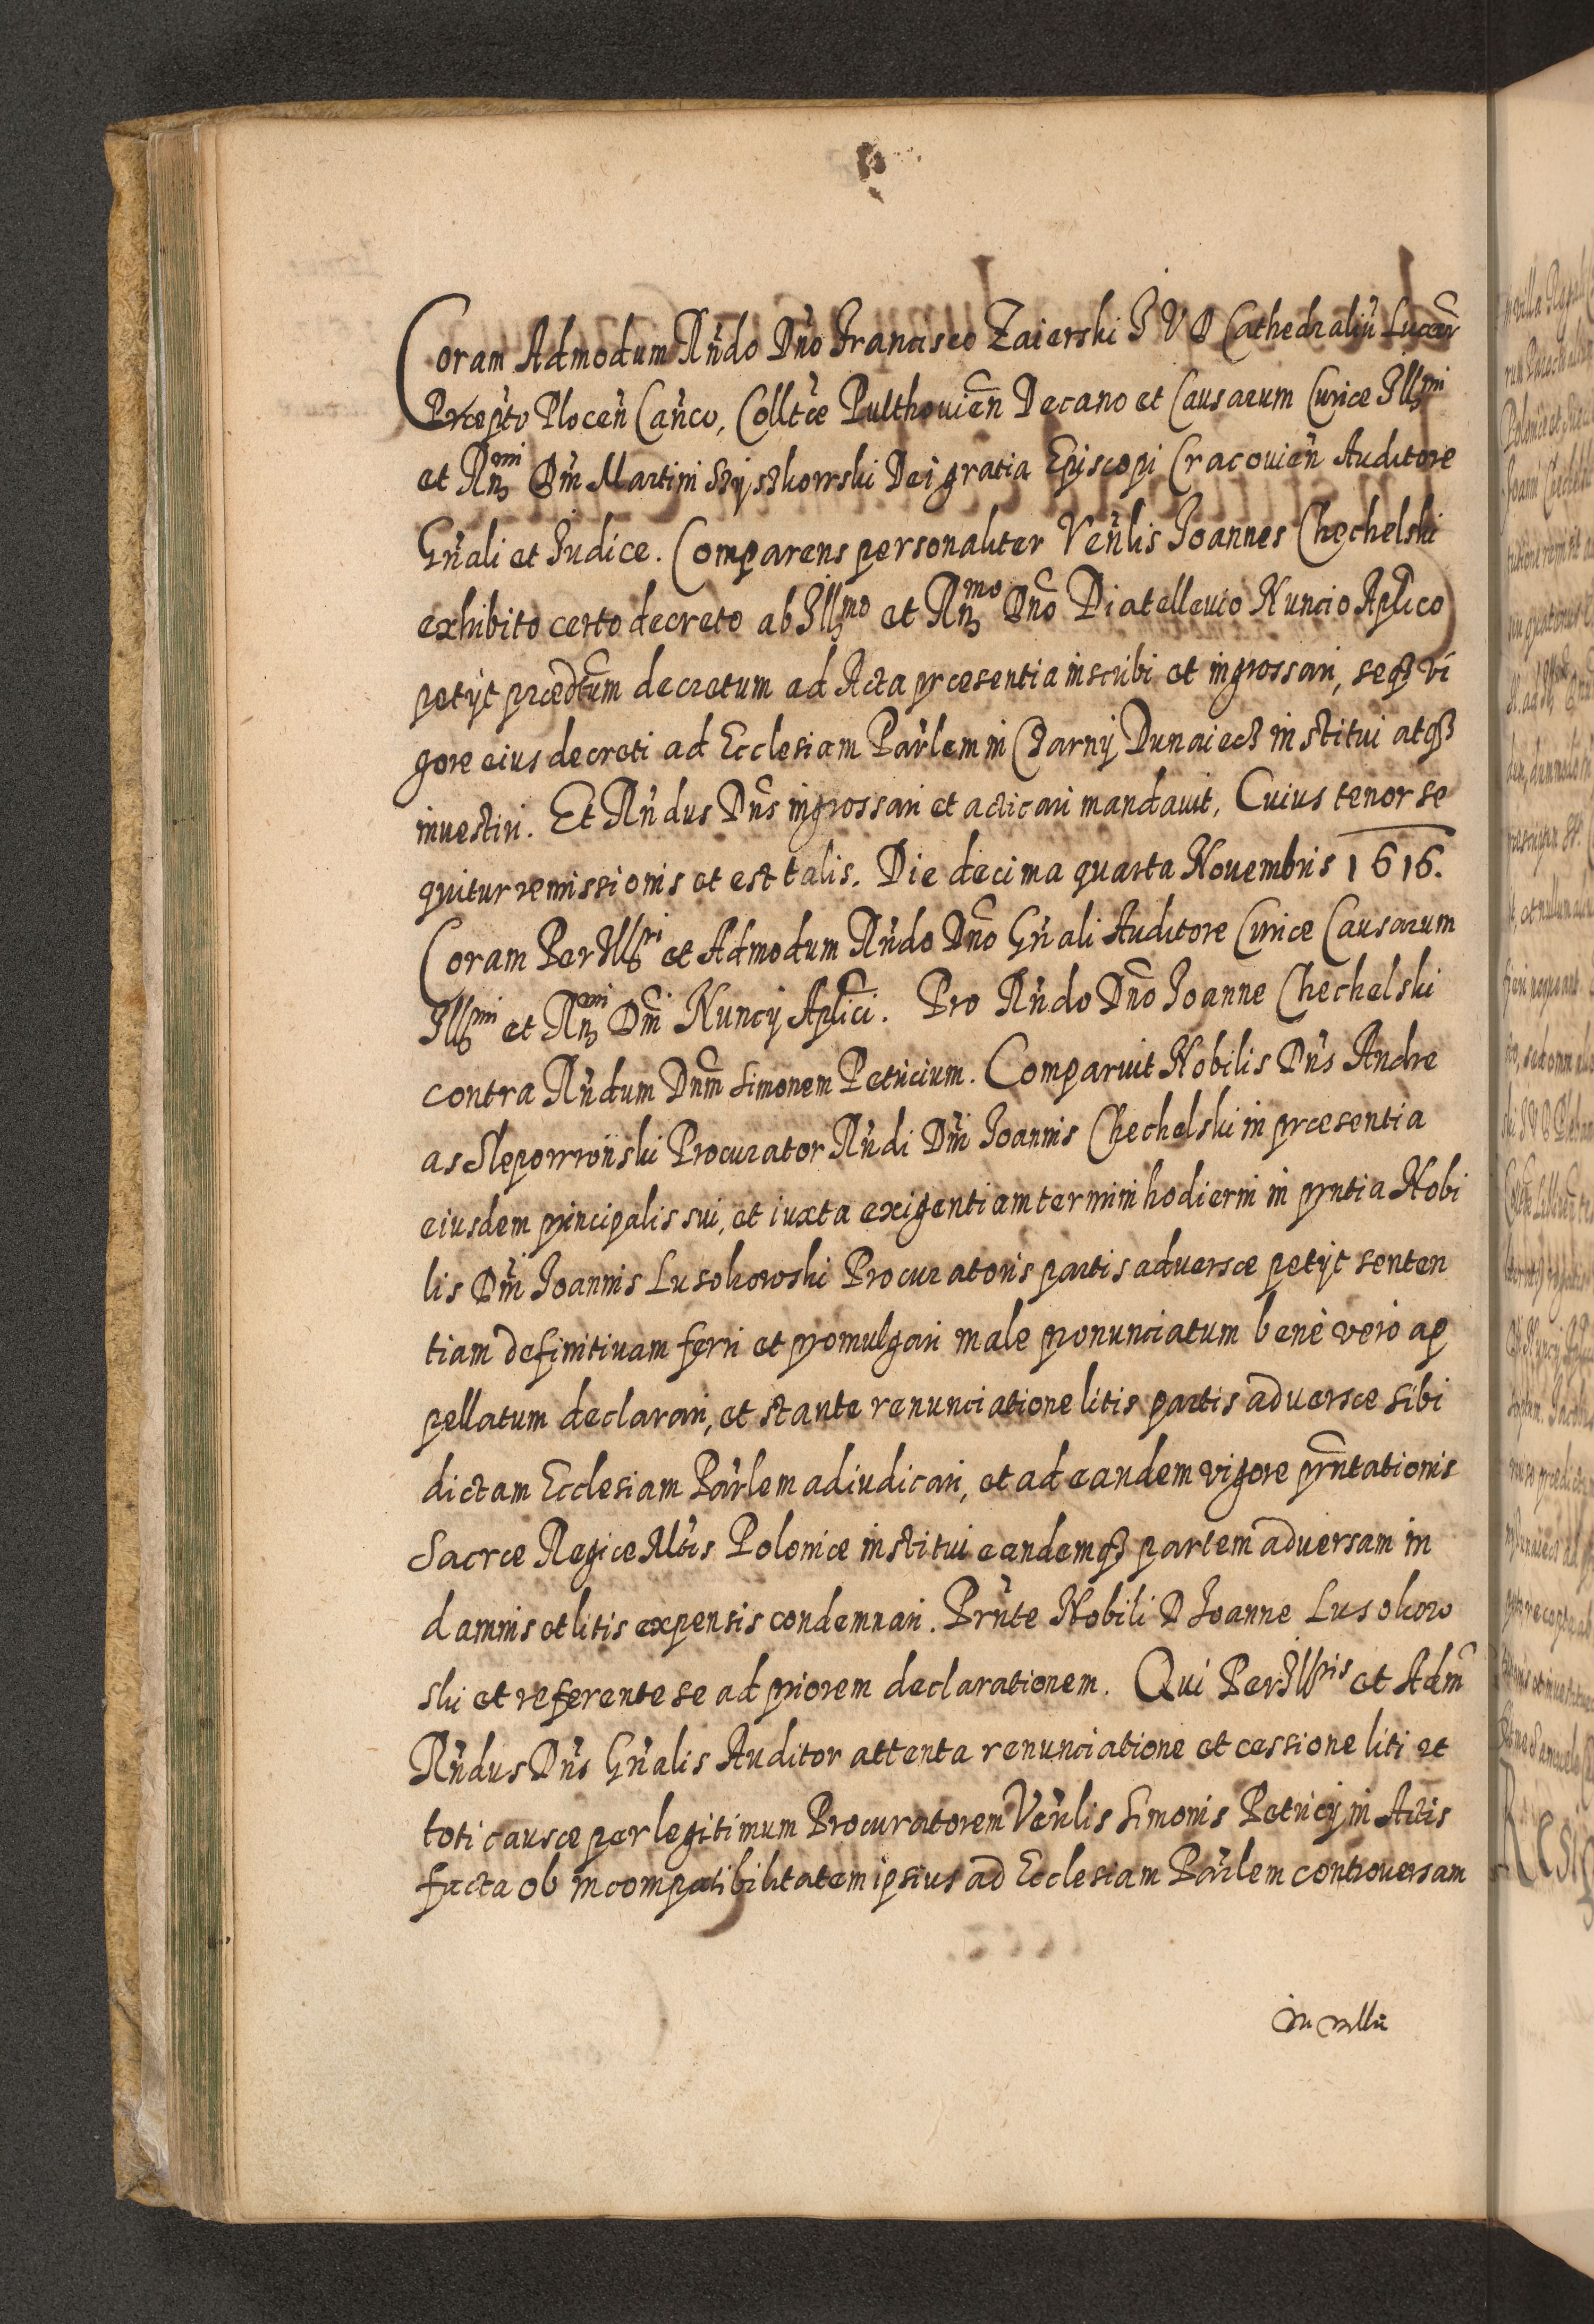 Coram Admodum Rńdo Dńo Francisco Zaierski I V D Cathedraliũ Luceoř
Præpto Plocen̄ Cańco, Colltæ Pulthouien̄ Decano et Causarum Curiæ Illmi
et Rmi Dńi Martini Szyszkowski Dei gratia Episcopi Cracouien̄ Auditore
Gńali et Iudice. Comparens personaliter Veńlis Ioannes Chechelski
exhibito certo decreto ab Illmo et Rmo Dńo Diatelleuio Nuncio Aplico
petijt prædtum decretum ad Acta præsentia inscribi et ingrossari, seqз vi
gore eius decreti ad Ecclesiam Pařlem in Czarny Dunaiecz institui atqз
inuestiri. Et Rńdus Dńs ingrossari et acticari mandauit. Cuius tenor se
quitur remissionis et est talis. Die decima quarta Nouembris 1616.
Coram Per Illri et Admodum Rńdo Dńo Gńali Auditore Curiæ Causarum
Illmi et Rmi Dńi Nuncij Aplici. Pro Rńdo Dńo Ioanne Chechelski
contra Rńdum Dńm Simonem Petricium. Comparuit Nobilis Dńs Andre
as Sleporwoński Procurator Rńdi Dńi Ioannis Chechelski in præsentia
eiusdem principalis sui, et iuxta exigentiam termini hodierni in pńtia Nobi
lis Dńi Ioannis Lusokowski Procuratoris partis aduersæ petijt senten
tiam definitiuam ferri et promulgari male pronunciatum benè verò ap
pellatum declarari, et stante renunciatione litis partis aduersæ sibi
dictam Ecclesiam Pařlem adiudicari, et ad eandem vigore pńtationis
Sacræ Regiæ Mtis Poloniæ institui eandemqз partem aduersam in
damnis et litis expensis condemnari. Prńte Nobili D Ioanne Lusokow
ski et referente se ad priorem declarationem. Qui Per Illris et Adm
Rńdus Dńs Gńalis Auditor attenta renunciatione et cessione liti et
toti causæ per legitimum Procuratorem Veńlis Simonis Petricij in Actis
facta ob incompatibilitatem ipsius ad Ecclesiam Pařlem controuersam
in villa